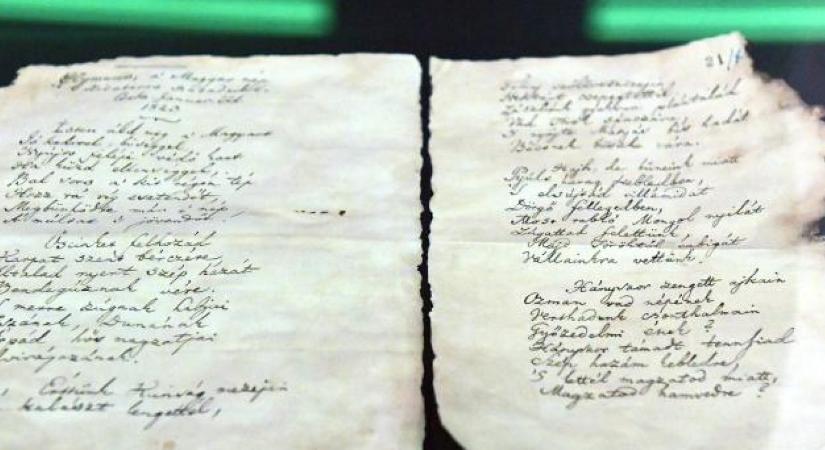 Hymnus, a' Magyar nép
zivataros századaiból
Cseke, Januar 22d
1823
Isten áldd meg a' Magyart
Jó kedvvel, bőséggel,
Nyújts feléje védő kart
Ha küzd ellenséggel;
Bal sors a' kit régen tép
Hozz rá víg esztendőt,
Megbünhődte már e' nép
A' múltat 's jövendőt.
felhozád
Kárpát szent bérczére,
nyert szép hazát
Bendegúznak vére.
merre zúgnak habjai
Dunának
hős magzatjai
Értünk Kunság mezején
kalászt lengettél,
21/
zászlónk gyakran plántálád
Vad török sáncára,
'S nyögte Mátyás bús hadát
Bécsnek büszke vára.
Hajh, de bűneink miatt
Gyúlt harag kebledben,
'S elsújtád villámidat
Dörgő fellegedben,
Most rabló Mongol nyilát
Zúgattad felettünk,
Majd Töröktől rabigát
Vállainkra vettünk.
Hányszor zengett ajkain
Ozman vad népének
Vert hadunk csonthalmain
Győzedelmi ének?
Hányszor támadt tenn fiad
Szép hazám kebledre,
'S lettél magzatod miatt,
Magzatod hamvedre?